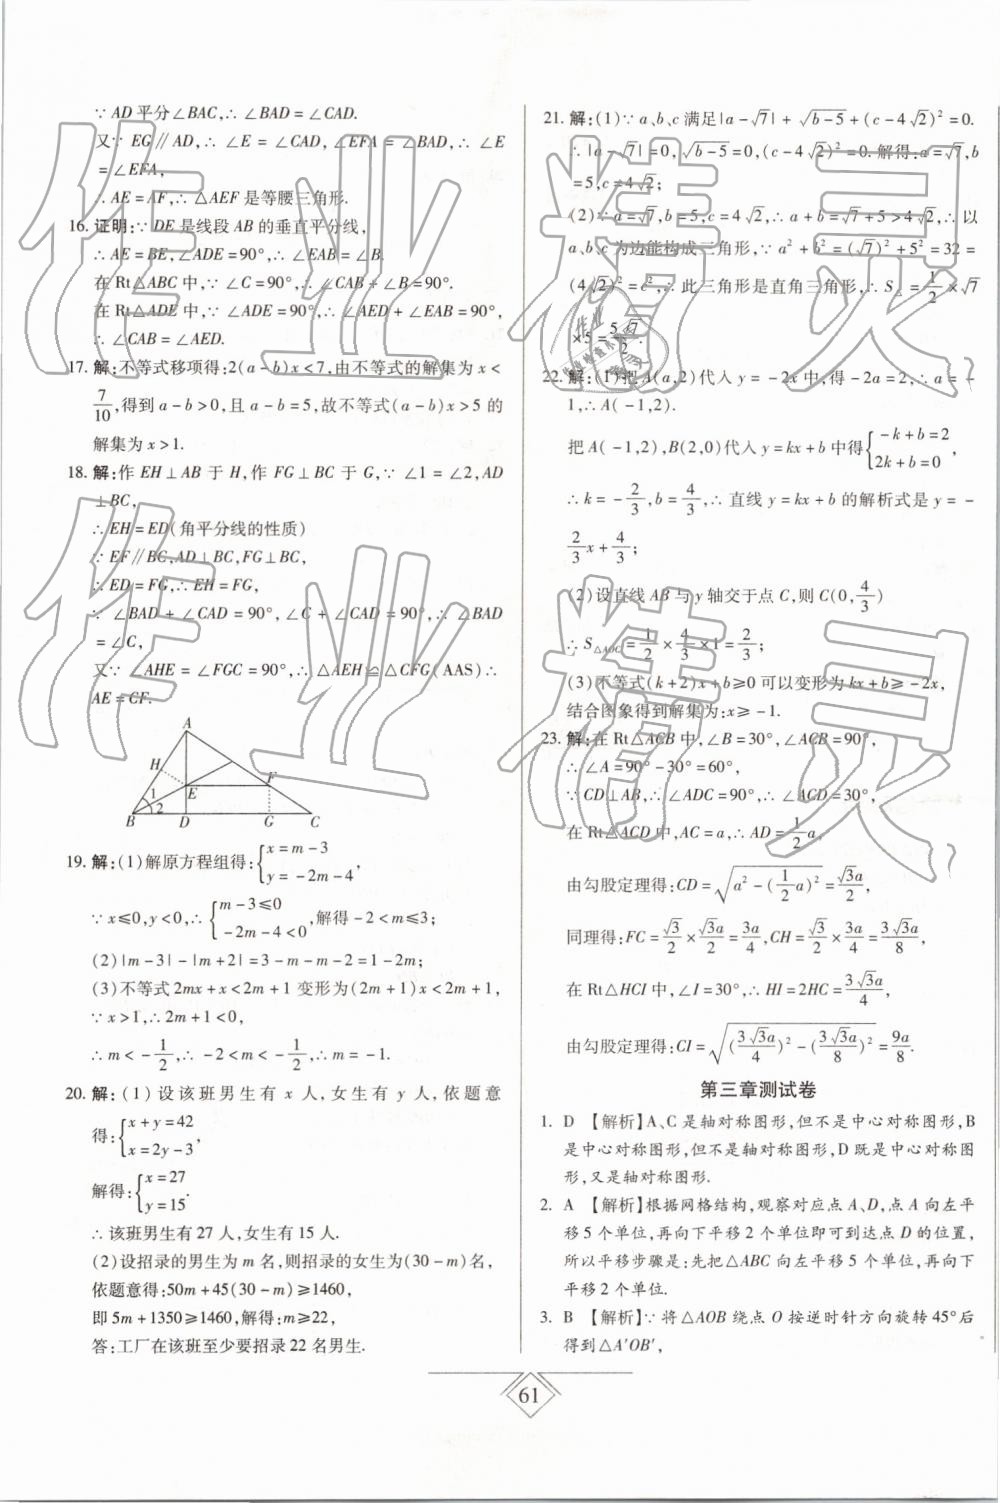 ∵ AD平分∠BAC,∴ ∠BAD=∠CAD.
又∵ EG∥AD,∴ ∠E=∠CAD,∠EFA=∠BAD,∴ ∠E
=∠EFA,
∴ AE=AF,∴ △AEF是等腰三角形.
16. 证明:∵ DE是线段AB的垂直平分线,
∴ AE=BE,∠ADE=90°,∴ ∠EAB=∠B.
在Rt△ABC中,∵ ∠C=90°,∴ ∠CAB+∠B=90°.
在Rt△ADE中,∵ ∠ADE=90°,∴ ∠AED+∠EAB=90°,
∴ ∠CAB=∠AED.
17. 解:不等式移项得:2(a-b)x<7,由不等式的解集为x<
7/10,得到a-b>0,且a-b=5,故不等式(a-b)x>5的
解集为x>1.
18. 解:作EH⊥AB于H,作FG⊥BC于G,∵ ∠1=∠2,AD
⊥BC,
∴ EH=ED(角平分线的性质)
∵ EF∥BC,AD⊥BC,FG⊥BC,
∴ ED=FG,∴ EH=FG,
∵ ∠BAD+∠CAD=90°,∠C+∠CAD=90°,∴ ∠BAD
=∠C,
又∵ AHE=∠FGC=90°,∴ △AEH≌△CFG(AAS)∴
AE=CF.
A
H
F
1
E
2
B D G C
19. 解:(1)解原方程组得:{x=m-3
y=-2m-4,
∵ x≤0,y<0,∴ {m-3≤0
-2m-4<0,解得-2<m≤3;
(2)|m-3|-|m+2|=3-m-m-2=1-2m;
(3)不等式2mx+x<2m+1变形为(2m+1)x<2m+1,
∵ x>1,∴ 2m+1<0,
∴ m<-1/2,∴ -2<m<-1/2,∴ m=-1.
20. 解:(1)设该班男生有x人,女生有y人,依题意
得:{x+y=42
x=2y-3,
解得:{x=27
y=15.
∴ 该班男生有27人,女生有15人.
(2)设招录的男生为m名,则招录的女生为(30-m)名,
依题意得:50m+45(30-m)≥1460,
即5m+1350≥1460,解得:m≥22,
答:工厂在该班至少要招录22名男生.
21. 解:(1)∵ a、b、c满足|a-√7|+√(b-5)+(c-4√2)²=0.
∴ |a-√7|=0,√(b-5)=0,(c-4√2)²=0.解得:a=√7,b
=5,c=4√2;
(2)∵ a=√7,b=5,c=4√2,∴ a+b=√7+5>4√2,∴ 以
a、b、c为边能构成三角形,∵ a²+b²=(√7)²+5²=32=
(4√2)²=c²,∴ 此三角形是直角三角形,∴ S△=1/2×√7
×5=5√7/2.
22. 解:(1)把A(a,2)代入y=-2x中,得-2a=2,∴ a=-
1,∴ A(-1,2).
把A(-1,2),B(2,0)代入y=kx+b中得{-k+b=2
2k+b=0,
∴ k=-2/3,b=4/3,∴ 直线y=kx+b的解析式是y=-
2/3x+4/3;
(2)设直线AB与y轴交于点C,则C(0,4/3)
∴ S△AOC=1/2×4/3×1=2/3;
(3)不等式(k+2)x+b≥0可以变形为kx+b≥-2x,
结合图象得到解集为:x≥-1.
23. 解:在Rt△ACB中,∠B=30°,∠ACB=90°,
∴ ∠A=90°-30°=60°,
∵ CD⊥AB,∴ ∠ADC=90°,∴ ∠ACD=30°,
在Rt△ACD中,AC=a,∴ AD=1/2a,
由勾股定理得:CD=√(a²-(1/2a)²)=√3a/2,
同理得:FC=√3/2×√3a/2=3a/4,CH=√3/2×3a/4=3√3a/8,
在Rt△HCI中,∠I=30°,∴ HI=2HC=3√3a/4,
由勾股定理得:CI=√((3√3a/4)²-(3√3a/8)²)=9a/8.
第三章测试卷
1. D 【解析】A、C是轴对称图形,但不是中心对称图形,B
是中心对称图形,但不是轴对称图形,D既是中心对称图
形,又是轴对称图形.
2. A 【解析】根据网格结构,观察对应点A、D,点A向左平
移5个单位,再向下平移2个单位即可到达点D的位置,
所以平移步骤是:先把△ABC向左平移5个单位,再向下
平移2个单位.
3. B 【解析】∵ 将△AOB绕点O按逆时针方向旋转45°后
得到△A′OB′,
61
作业精灵
作业精灵